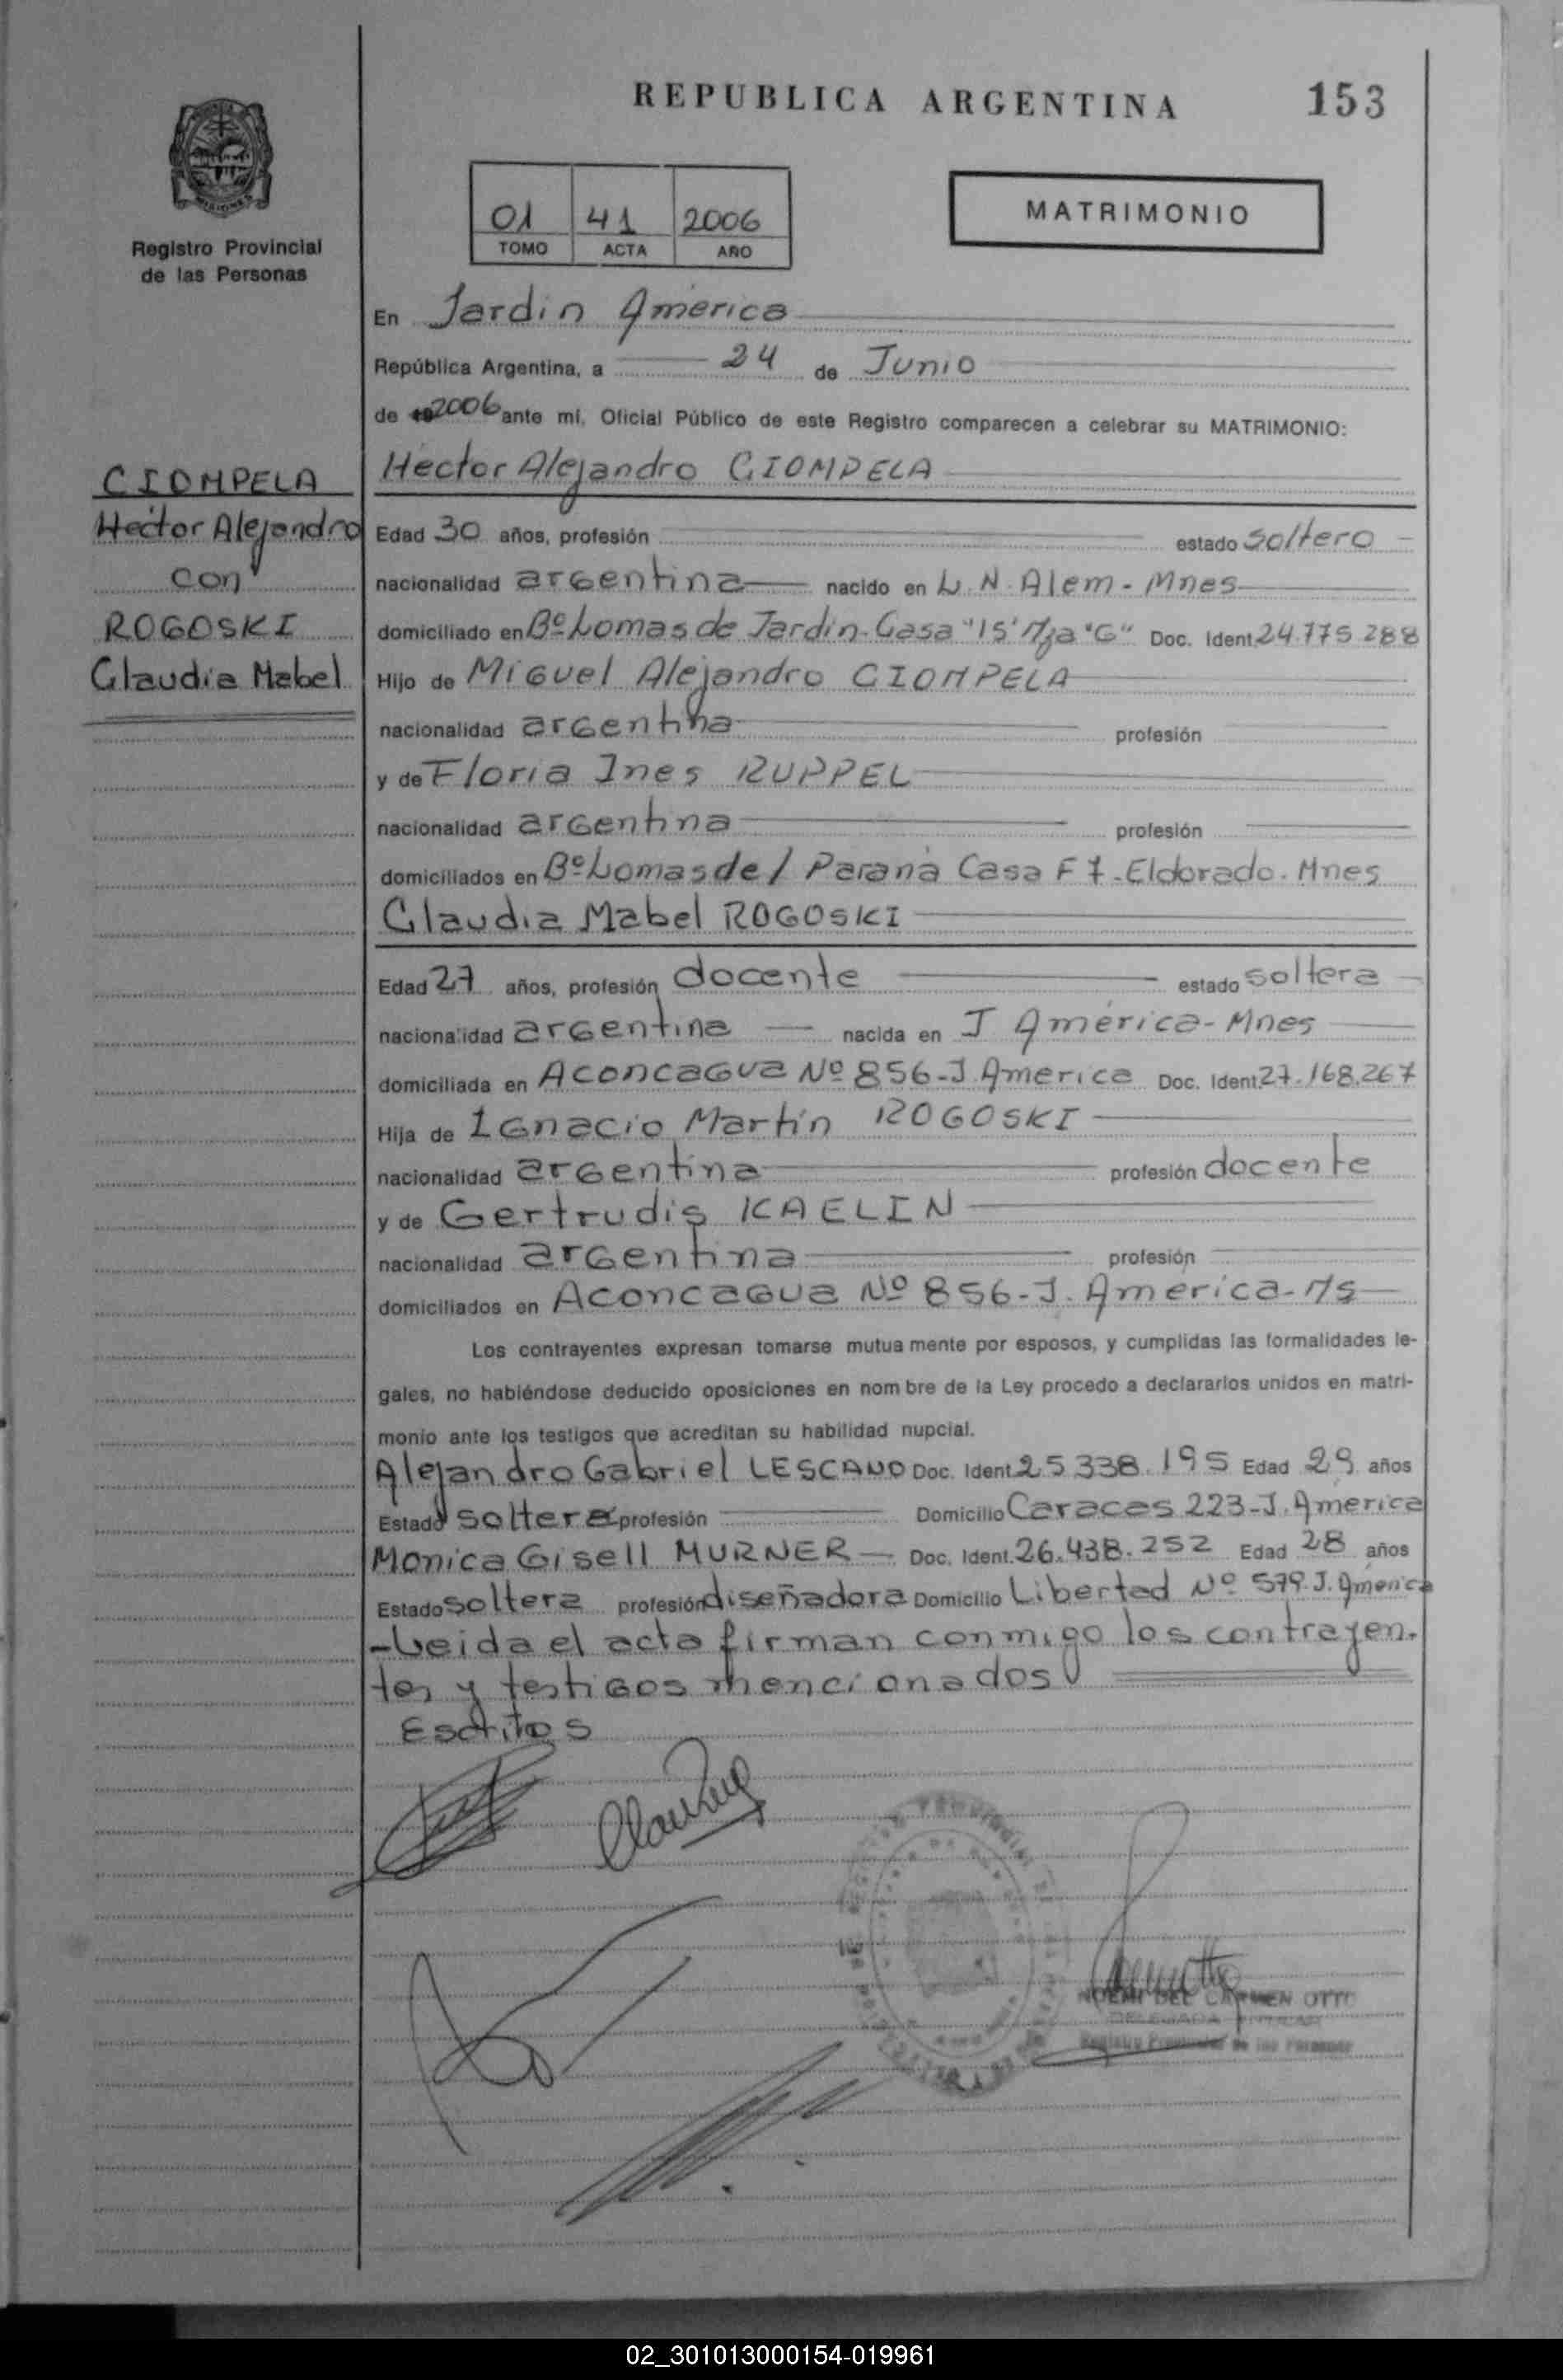 REPUBLICA ARGENTINA 153
MISIONES
Registro Provincial
de las Personas
01 41 2006
TOMO ACTA AÑO
MATRIMONIO
En Jardin America
República Argentina, a 24 de Junio
de 2006 ante mí, Oficial Público de este Registro comparecen a celebrar su MATRIMONIO:
CIOMPELA
Hector Alejandro
con
ROGOSKI
Claudia Mabel
Hector Alejandro CIOMPELA
Edad 30 años, profesión estado soltero
nacionalidad argentina nacido en L. N. Alem - Mnes
domiciliado en Bº Lomas de Jardin - Casa "15" Mza "G" Doc. Ident 24.775.288
Hijo de Miguel Alejandro CIOMPELA
nacionalidad argentina profesión
y de Floria Ines RUPPEL
nacionalidad argentina profesión
domiciliados en Bº Lomas del Paraná Casa F 7 - Eldorado. Mnes
Claudia Mabel ROGOSKI
Edad 27 años, profesión docente estado soltera
nacionalidad argentina nacida en J America - Mnes
domiciliada en Aconcagua Nº 856 - J. America Doc. Ident 27.168.267
Hija de Ignacio Martín ROGOSKI
nacionalidad argentina profesión docente
y de Gertrudis KAELIN
nacionalidad argentina profesión
domiciliados en Aconcagua Nº 856 - J. America - Ms
Los contrayentes expresan tomarse mutua mente por esposos, y cumplidas las formalidades le-
gales, no habiéndose deducido oposiciones en nom bre de la Ley procedo a declararlos unidos en matri-
monio ante los testigos que acreditan su habilidad nupcial.
Alejandro Gabriel LESCANO Doc. Ident 25.338.195 Edad 29 años
Estado soltero profesión Domicilio Caracas 223 - J. America
Monica Gisell MURNER Doc. Ident. 26.438.252 Edad 28 años
Estado soltera profesión diseñadora Domicilio Libertad Nº 579. J. America
- Leida el acta firman conmigo los contrayen.
tes y testigos mencionados
NOEMI DEL CARMEN OTTO
DELEGADA TITULAR
Registro Provincial de las Personas
02_301013000154-019961